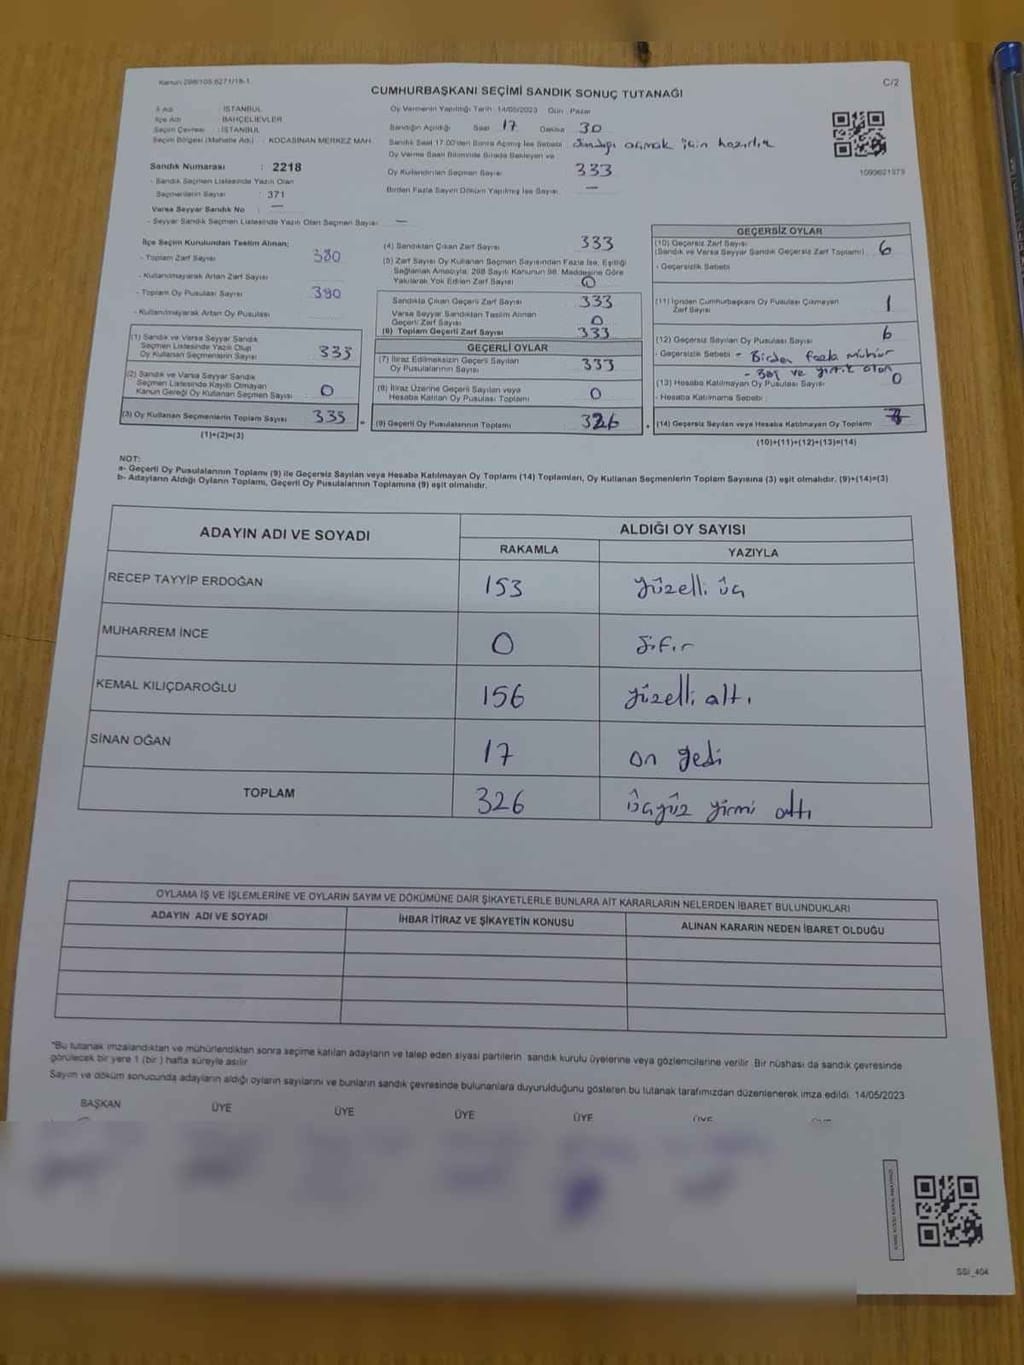 Kanun 298/105-6271/18-1
C/2
CUMHURBAŞKANI SEÇİMİ SANDIK SONUÇ TUTANAĞI
İl Adı : İSTANBUL
İlçe Adı : BAHÇELİEVLER
Seçim Çevresi : İSTANBUL
Seçim Bölgesi (Mahalle Adı) : KOCASİNAN MERKEZ MAH.
Sandık Numarası : 2218
- Sandık Seçmen Listesinde Yazılı Olan
Seçmenlerin Sayısı : 371
Varsa Seyyar Sandık No : —
- Seyyar Sandık Seçmen Listesinde Yazılı Olan Seçmen Sayısı : —
Oy Vermenin Yapıldığı Tarih : 14/05/2023 Gün : Pazar
Sandığın Açıldığı Saat 17 Dakika 30
Sandık Saat 17.00'den Sonra Açılmış İse Sebebi sandığı açmak için hazırlık
Oy Verme Saati Bitiminde Sırada Bekleyen ve
Oy Kullandırılan Seçmen Sayısı 333
Birden Fazla Sayım Döküm Yapılmış İse Sayısı —
1099621973
İlçe Seçim Kurulundan Teslim Alınan;
- Toplam Zarf Sayısı 380
- Kullanılmayarak Artan Zarf Sayısı
- Toplam Oy Pusulası Sayısı 390
- Kullanılmayarak Artan Oy Pusulası
(1) Sandık ve Varsa Seyyar Sandık
Seçmen Listesinde Yazılı Olup
Oy Kullanan Seçmenlerin Sayısı 333
(2) Sandık ve Varsa Seyyar Sandık
Seçmen Listesinde Kayıtlı Olmayan
Kanun Gereği Oy Kullanan Seçmen Sayısı 0
(3) Oy Kullanan Seçmenlerin Toplam Sayısı 333
(1)+(2)=(3)
(4) Sandıktan Çıkan Zarf Sayısı 333
(5) Zarf Sayısı Oy Kullanan Seçmen Sayısından Fazla İse, Eşitliği
Sağlamak Amacıyla, 298 Sayılı Kanunun 98. Maddesine Göre
Yakılarak Yok Edilen Zarf Sayısı 0
Sandıkta Çıkan Geçerli Zarf Sayısı 333
Varsa Seyyar Sandıktan Teslim Alınan
Geçerli Zarf Sayısı 0
(6) Toplam Geçerli Zarf Sayısı 333
GEÇERLİ OYLAR
(7) İtiraz Edilmeksizin Geçerli Sayılan
Oy Pusulalarının Sayısı 333
(8) İtiraz Üzerine Geçerli Sayılan veya
Hesaba Katılan Oy Pusulası Toplamı 0
(9) Geçerli Oy Pusulalarının Toplamı 326
GEÇERSİZ OYLAR
(10) Geçersiz Zarf Sayısı
(Sandık ve Varsa Seyyar Sandık Geçersiz Zarf Toplamı) 6
- Geçersizlik Sebebi
(11) İçinden Cumhurbaşkanı Oy Pusulası Çıkmayan
Zarf Sayısı 1
(12) Geçersiz Sayılan Oy Pusulası Sayısı 6
- Geçersizlik Sebebi - Birden fazla mühür
- Boş ve yırtık olan
(13) Hesaba Katılmayan Oy Pusulası Sayısı 0
- Hesaba Katılmama Sebebi :
(14) Geçersiz Sayılan veya Hesaba Katılmayan Oy Toplamı 7
(10)+(11)+(12)+(13)=(14)
NOT:
a- Geçerli Oy Pusulalarının Toplamı (9) ile Geçersiz Sayılan veya Hesaba Katılmayan Oy Toplamı (14) Toplamları, Oy Kullanan Seçmenlerin Toplam Sayısına (3) eşit olmalıdır. (9)+(14)=(3)
b- Adayların Aldığı Oyların Toplamı, Geçerli Oy Pusulalarının Toplamına (9) eşit olmalıdır.
ADAYIN ADI VE SOYADI
ALDIĞI OY SAYISI
RAKAMLA YAZIYLA
RECEP TAYYİP ERDOĞAN 153 yüzelli üç
MUHARREM İNCE 0 Sıfır
KEMAL KILIÇDAROĞLU 156 yüzelli altı
SİNAN OĞAN 17 on yedi
TOPLAM 326 üçyüz yirmi altı
OYLAMA İŞ VE İŞLEMLERİNE VE OYLARIN SAYIM VE DÖKÜMÜNE DAİR ŞİKAYETLERLE BUNLARA AİT KARARLARIN NELERDEN İBARET BULUNDUKLARI
ADAYIN ADI VE SOYADI İHBAR İTİRAZ VE ŞİKAYETİN KONUSU ALINAN KARARIN NEDEN İBARET OLDUĞU
"Bu tutanak imzalandıktan ve mühürlendikten sonra seçime katılan adayların ve talep eden siyasi partilerin sandık kurulu üyelerine veya gözlemcilerine verilir. Bir nüshası da sandık çevresinde
görülecek bir yere 1 (bir ) hafta süreyle asılır.
Sayım ve döküm sonucunda adayların aldığı oyların sayılarını ve bunların sandık çevresinde bulunanlara duyurulduğunu gösteren bu tutanak tarafımızdan düzenlenerek imza edildi. 14/05/2023
BAŞKAN ÜYE ÜYE ÜYE ÜYE ÜYE
SSI_404